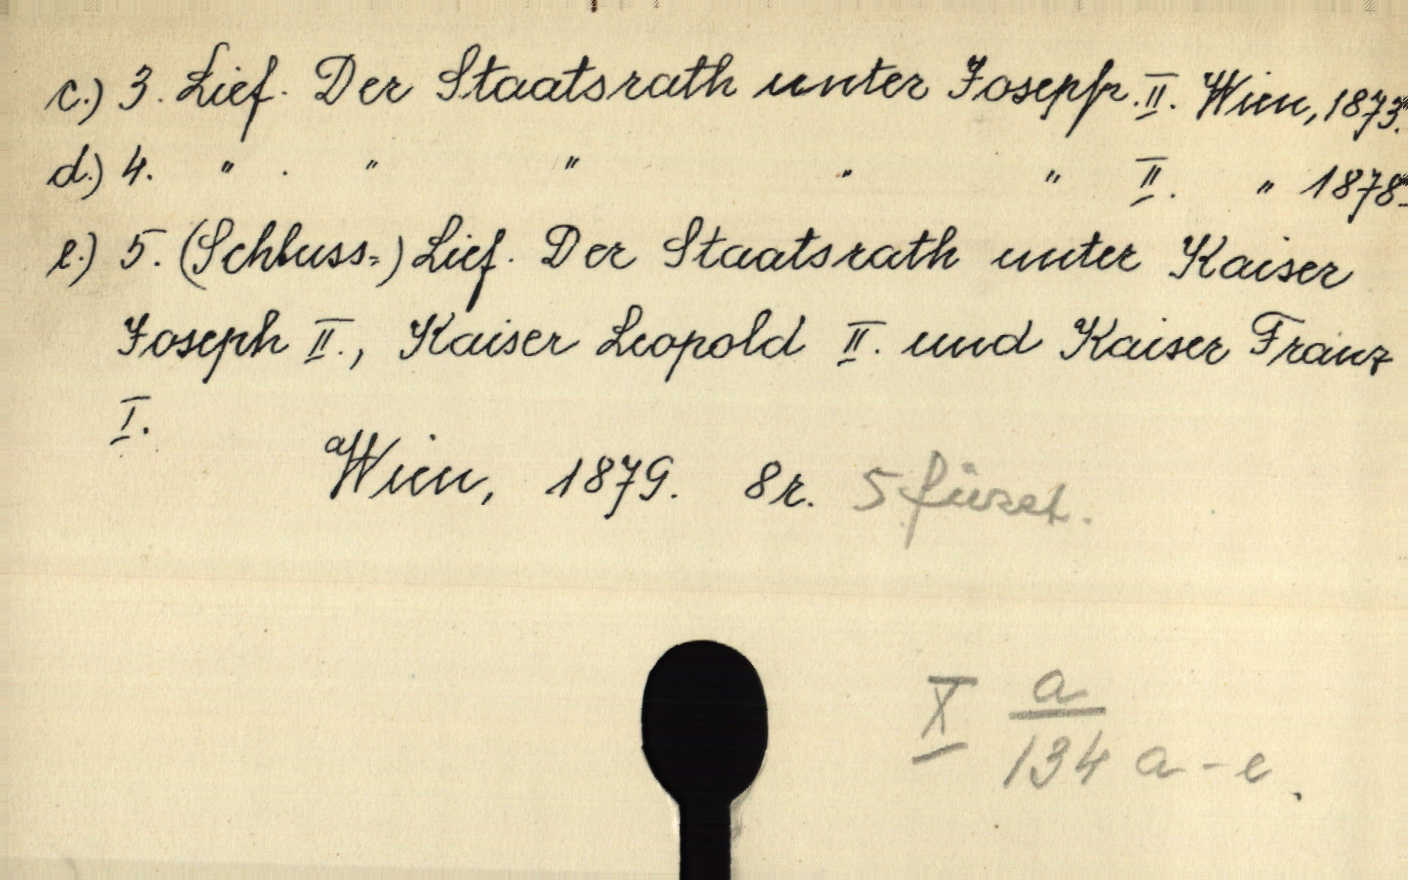 c.) 3. Lief. Der Staatsrath unter Joseph. II. Wien, 1873.
d.) 4. " . " " " " II. " 1878.
e.) 5. (Schluss=) Lief. Der Staatsrath unter Kaiser
Joseph II., Kaiser Leopold II. und Kaiser Franz
I.
Wien, 1879. 8r. 5 füzet.
X a
134 a-e.